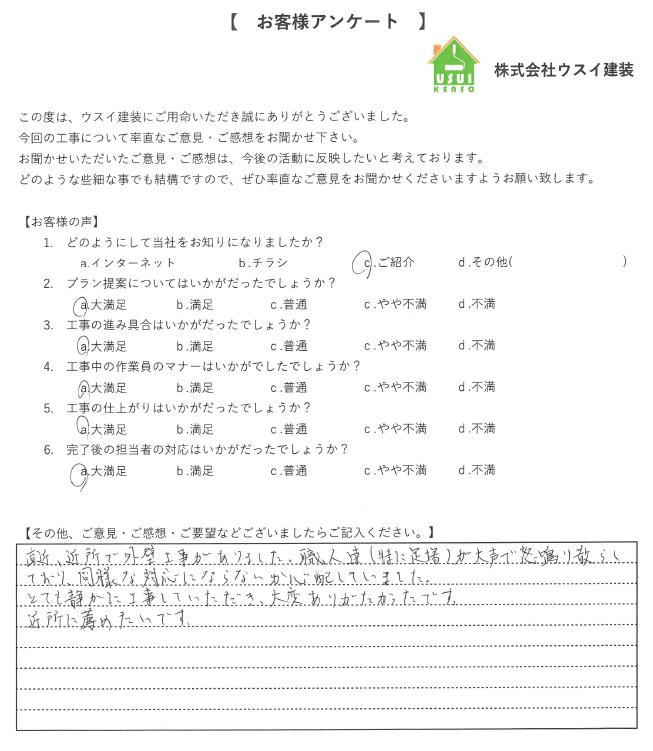 【 お客様アンケート 】
USUI
KENSO
株式会社ウスイ建装
この度は、ウスイ建装にご用命いただき誠にありがとうございました。
今回の工事について率直なご意見・ご感想をお聞かせ下さい。
お聞かせいただいたご意見・ご感想は、今後の活動に反映したいと考えております。
どのような些細な事でも結構ですので、ぜひ率直なご意見をお聞かせくださいますようお願い致します。
【お客様の声】
1. どのようにして当社をお知りになりましたか？
a.インターネット b.チラシ c.ご紹介 d.その他( )
2. プラン提案についてはいかがだったでしょうか？
a.大満足 b.満足 c.普通 c.やや不満 d.不満
3. 工事の進み具合はいかがだったでしょうか？
a.大満足 b.満足 c.普通 c.やや不満 d.不満
4. 工事中の作業員のマナーはいかがでしたでしょうか？
a.大満足 b.満足 c.普通 c.やや不満 d.不満
5. 工事の仕上がりはいかがだったでしょうか？
a.大満足 b.満足 c.普通 c.やや不満 d.不満
6. 完了後の担当者の対応はいかがだったでしょうか？
a.大満足 b.満足 c.普通 c.やや不満 d.不満
【その他、ご意見・ご感想・ご要望などございましたらご記入ください。】
直近、近所で外壁工事がありました。職人達(特に足場)が大声で怒鳴り散らし
ており、同様な対応にならないか心配していました。
とても静かに工事していただき、大変ありがたかったです。
近所に薦めたいです。